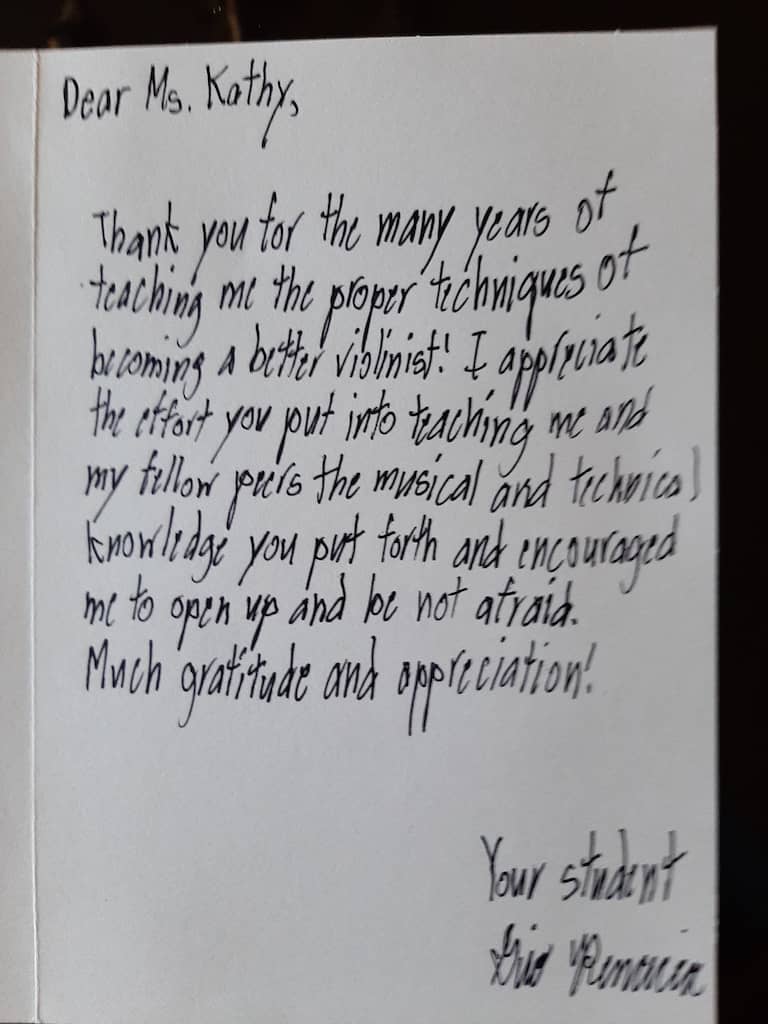 Dear Ms. Kathy,
Thank you for the many years of
teaching me the proper techniques of
becoming a better violinist! I appreciate
the effort you put into teaching me and
my fellow peers the musical and technical
knowledge you put forth and encouraged
me to open up and be not afraid.
Much gratitude and appreciation!
Your student